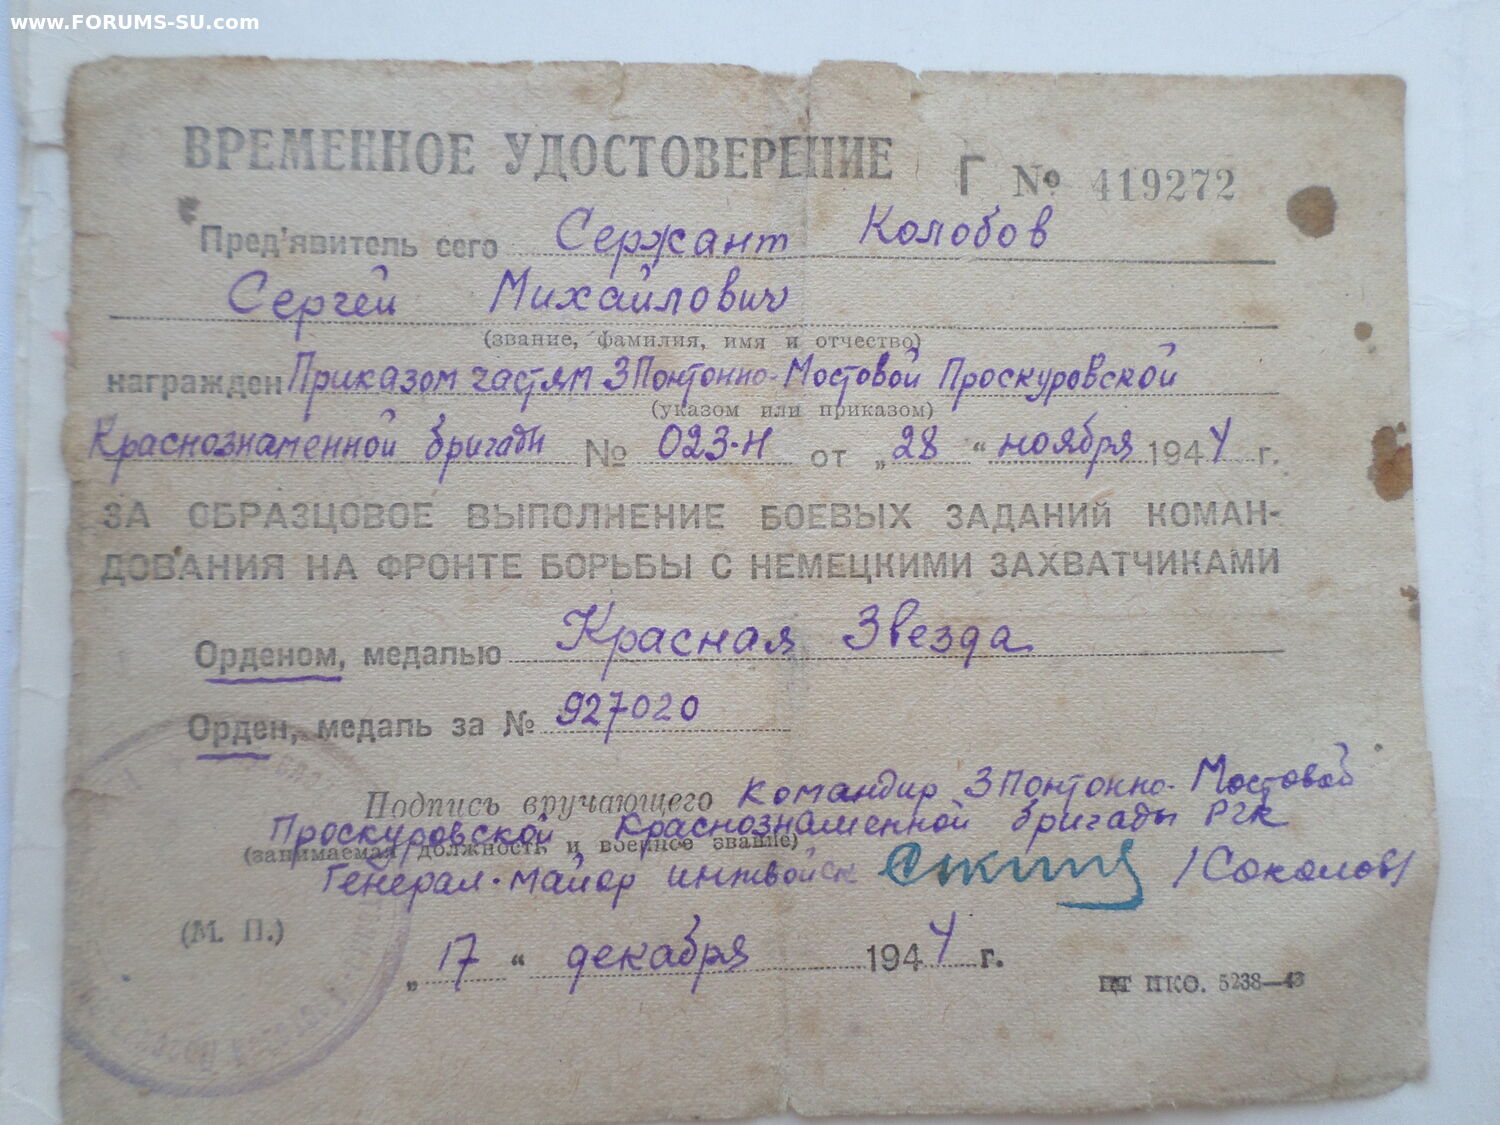 www.FORUMS-SU.com
ВРЕМЕННОЕ УДОСТОВЕРЕНИЕ Г № 419272
Пред'явитель сего Сержант Колобов
Сергей Михайлович
(звание, фамилия, имя и отчество)
награжден Приказом частям 3 Понтонно-Мостовой Проскуровской
(указом или приказом)
Краснознаменной бригады № 023-Н от „28“ ноября 1944 г.
ЗА ОБРАЗЦОВОЕ ВЫПОЛНЕНИЕ БОЕВЫХ ЗАДАНИЙ КОМАН-
ДОВАНИЯ НА ФРОНТЕ БОРЬБЫ С НЕМЕЦКИМИ ЗАХВАТЧИКАМИ
Орденом, медалью Красная Звезда
Орден, медаль за № 927020
Подпись вручающего Командир 3 Понтонно-Мостовой
Проскуровской Краснознаменной бригады РГК
(занимаемая должность и военное звание)
Генерал-майор инжвойск /Соколов/
(М. П.)
„17“ декабря 1944 г.
ЦТ ПКО. 5238—43